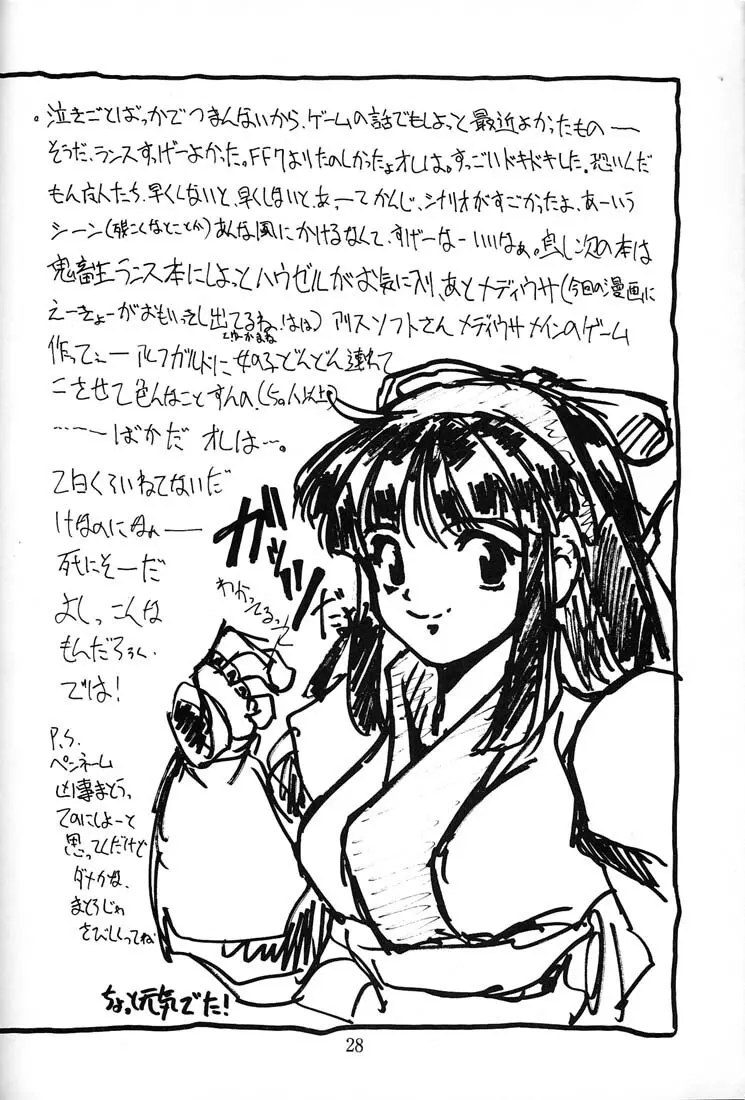 。泣きごとばっかでつまんないから、ゲームの話でもしよっと 最近よかったもの──
そうだ、ランスすっげーよかった。FF7よりたのしかったよオレは。すっごいドキドキした。恐いんだ
もん友人たち、早くしないと、早くしないと、あ、ーてかんじ、シナリオがすごかったよ、あーいう
シーン(とことか)あんな風にかけるなんて、すげーなーいいなぁ。良し次の本は
鬼畜王ランス本にしよっと ハウゼルがお気に入り、あとメディウサ(今回の漫画に
えーきょーがおもいきし出てるね、はは)アリスソフトさん メディウサメインのゲーム
作ってぇー アルフガルドに 女の子どんどん連れて
こさせて色んなことすんの。(50人以上)
……ーばかだ オレはー。
2日くらいねてないだ
けなのになぁー
死にそーだ
よしっこんな
もんだろぅ、
では!
ガッツ
だ
わかってるって
P.S.
ペンネーム
凶事まとう、
てのにしよーと
思ってんだけど
ダメかな、
まとうじゃ
さびしくってね
ちょっと元気でた!
28